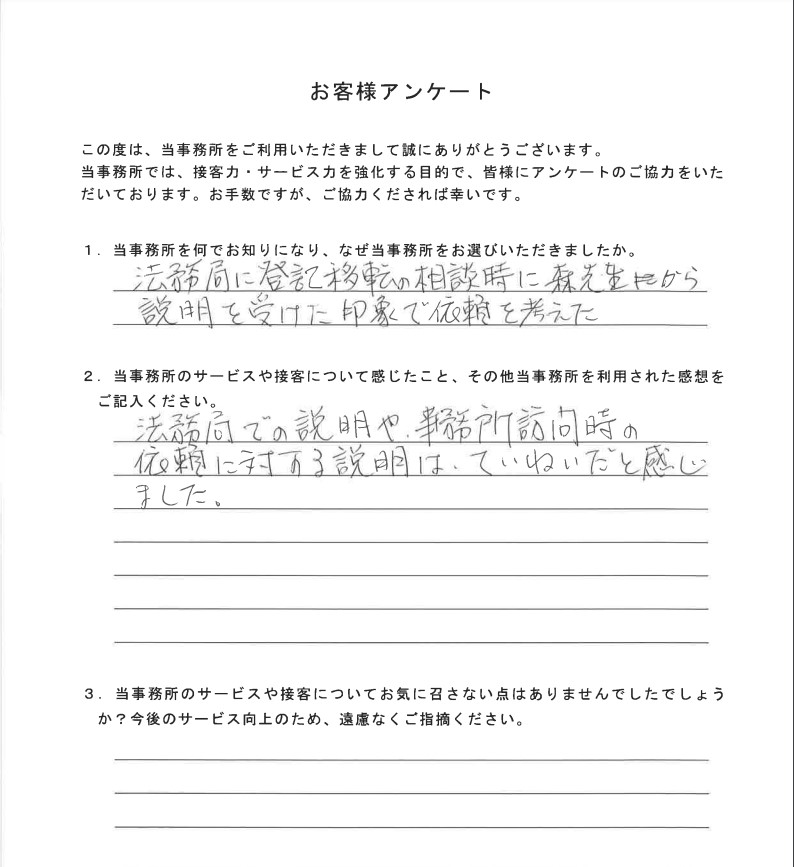 お客様アンケート
この度は、当事務所をご利用いただきまして誠にありがとうございます。
当事務所では、接客力・サービス力を強化する目的で、皆様にアンケートのご協力をいた
だいております。お手数ですが、ご協力くだされば幸いです。
１．当事務所を何でお知りになり、なぜ当事務所をお選びいただきましたか。
法務局に登記移転の相談時に森先生から
説明を受けた印象で依頼を考えた
２．当事務所のサービスや接客について感じたこと、その他当事務所を利用された感想を
ご記入ください。
法務局での説明や、事務所訪問時の
依頼に対する説明は、ていねいだと感じ
ました。
３．当事務所のサービスや接客についてお気に召さない点はありませんでしたでしょう
か？今後のサービス向上のため、遠慮なくご指摘ください。